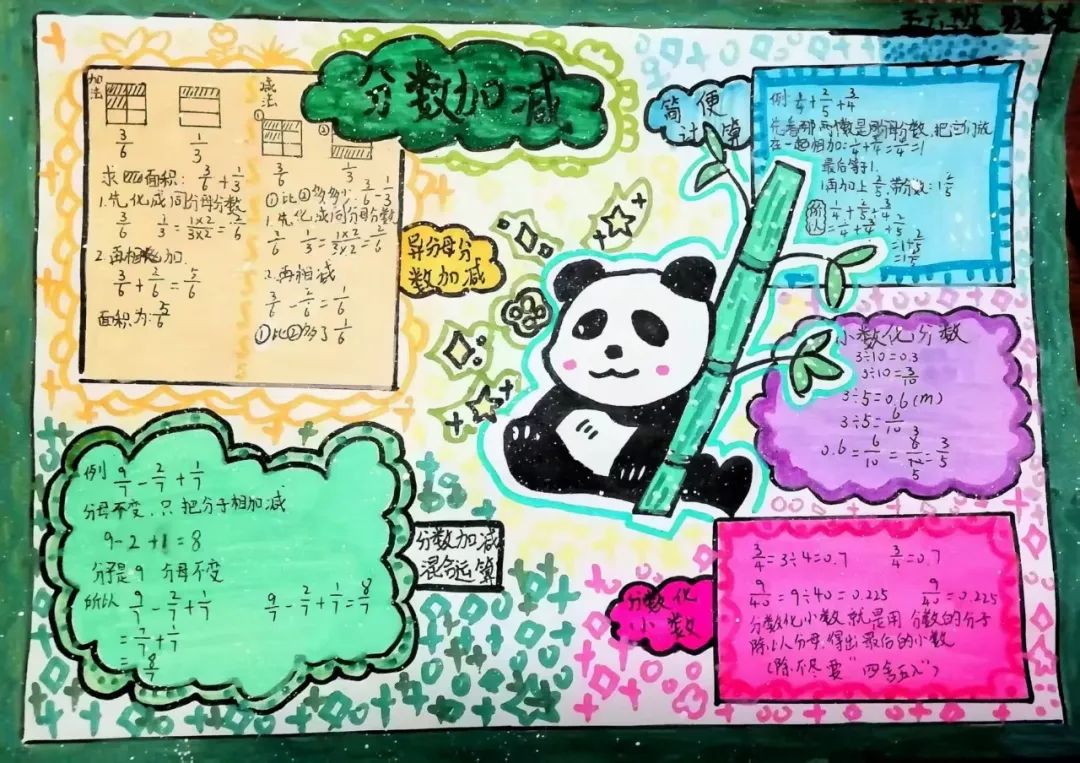 五六班
分数加减
加法
3/6
1/3
求四面积: 3/6+1/3
1.先化成同分母分数
3/6 1/3=1×2/3×2=2/6
2.再相加.
3/6+2/6=5/6
面积为:5/6
减法
① ②
3/6 1/3
①比②多多少 3/6-1/3
1.先化成同分母分数
3/6 1/3=1×2/3×2=2/6
2.再相减
3/6-2/6=1/6
①比②多了1/6
异分母分
数加减
简便
计算
例 1/4+2/5+3/4
先看那两个数是同分母分数,把它们放
在一起相加:1/4+3/4=4/4=1
最后等于1.
1再加上2/5,带分数:1 2/5
所以 1/4+2/5+3/4
=1/4+3/4+2/5
=1+2/5
=1 2/5
小数化分数
3÷10=0.3
3÷10=3/10
3÷5=0.6(m)
3÷5=6/10
0.6=6/10=3/5
例 9/7-2/7+1/7
分母不变,只把分子相加减
9-2+1=8
分子是9 分母不变
所以 9/7-2/7+1/7 9/7-2/7+1/7=8/7
=7/7+1/7
=8/7
分数加减
混合运算
分数化
小数
3/4=3÷4=0.7 3/4=0.7
9/40=9÷40=0.225 9/40=0.225
分数化小数就是用分数的分子
除以分母.得出最后的小数
(除不尽要"四舍五入")